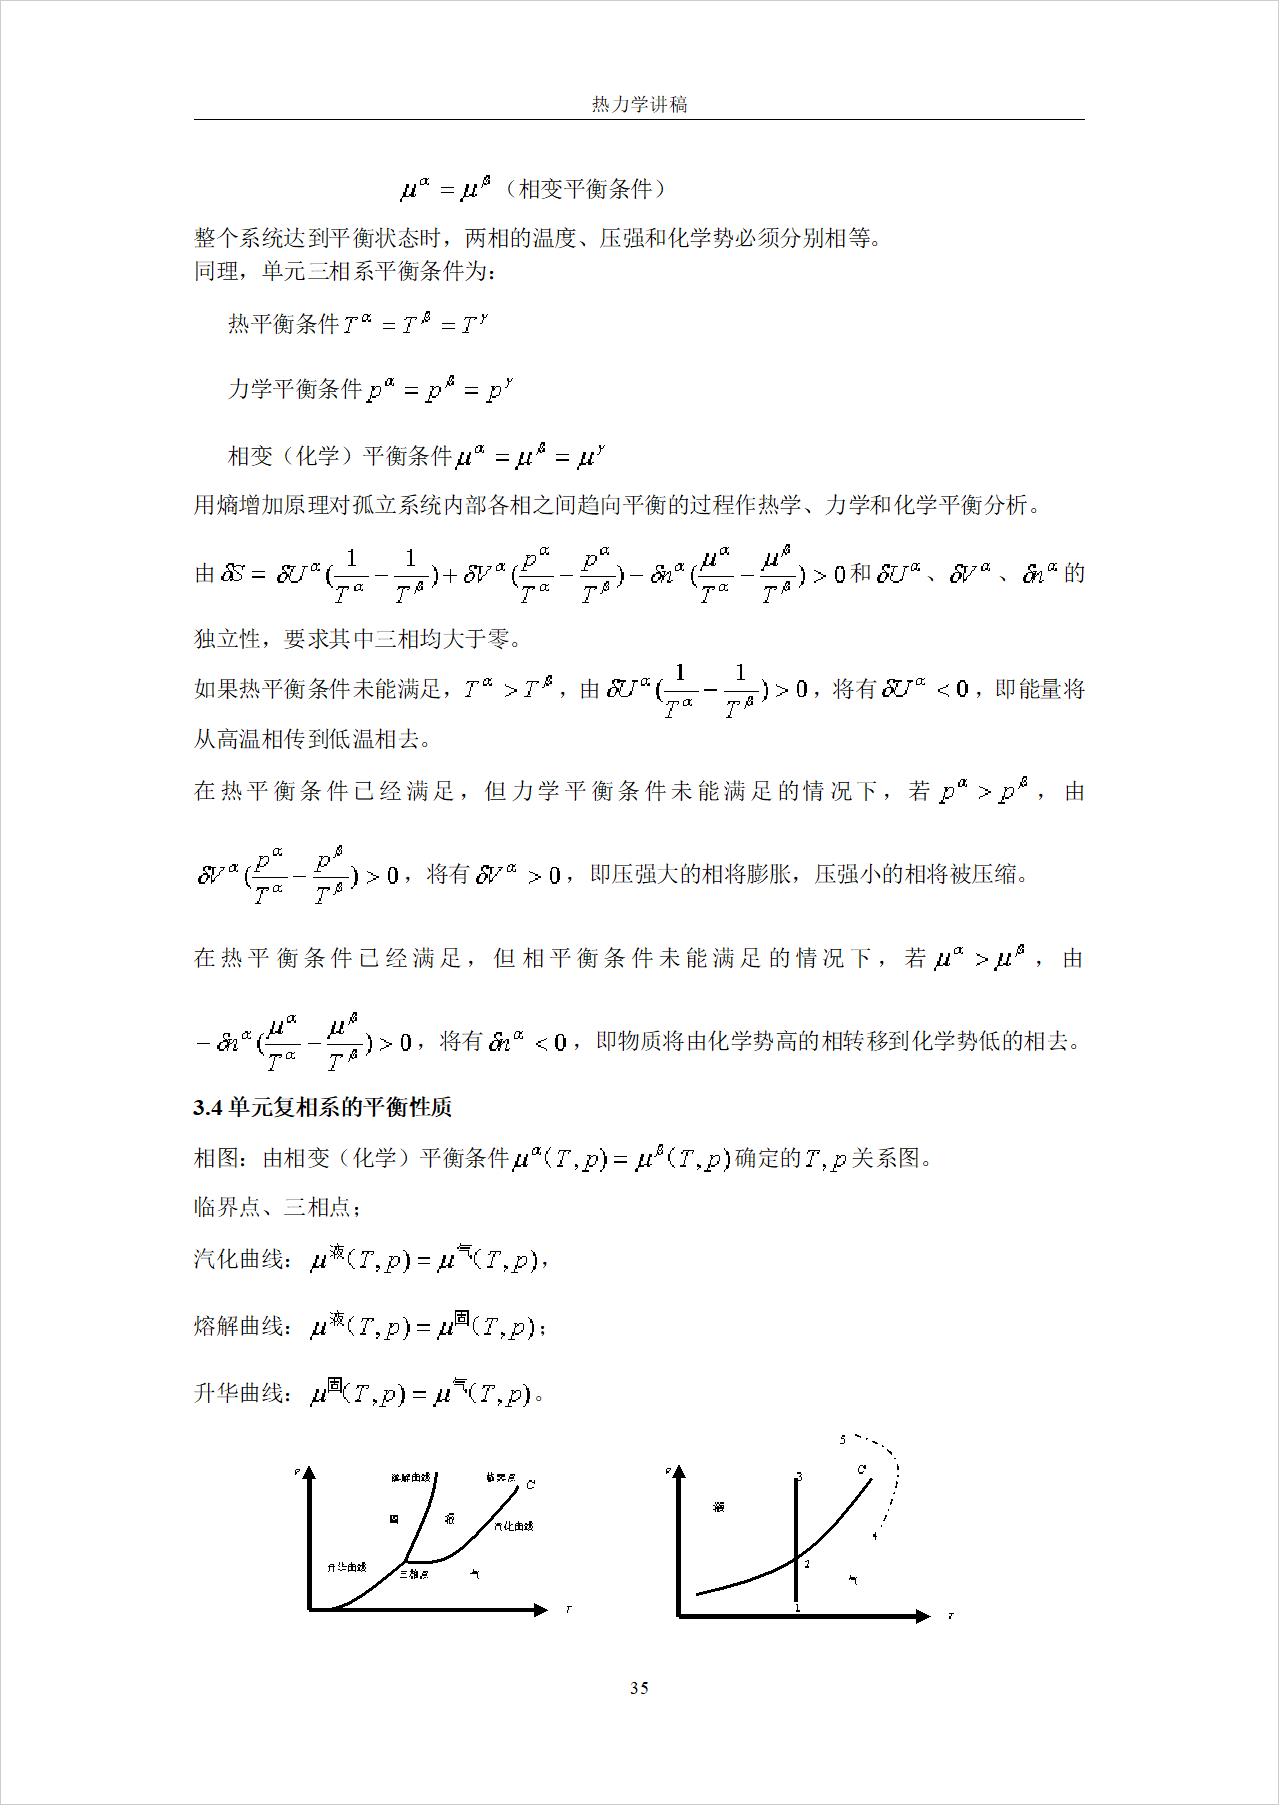 热力学讲稿
μ^α = μ^β（相变平衡条件）
整个系统达到平衡状态时，两相的温度、压强和化学势必须分别相等。
同理，单元三相系平衡条件为：
热平衡条件 T^α = T^β = T^γ
力学平衡条件 p^α = p^β = p^γ
相变（化学）平衡条件 μ^α = μ^β = μ^γ
用熵增加原理对孤立系统内部各相之间趋向平衡的过程作热学、力学和化学平衡分析。
由 δS = δU^α(1/T^α − 1/T^β) + δV^α(p^α/T^α − p^α/T^β) − δn^α(μ^α/T^α − μ^β/T^β) > 0 和 δU^α、δV^α、δn^α 的
独立性，要求其中三相均大于零。
如果热平衡条件未能满足，T^α > T^β，由 δU^α(1/T^α − 1/T^β) > 0，将有 δU^α < 0，即能量将
从高温相传到低温相去。
在热平衡条件已经满足，但力学平衡条件未能满足的情况下，若 p^α > p^β，由
δV^α(p^α/T^α − p^β/T^β) > 0，将有 δV^α > 0，即压强大的相将膨胀，压强小的相将被压缩。
在热平衡条件已经满足，但相平衡条件未能满足的情况下，若 μ^α > μ^β，由
−δn^α(μ^α/T^α − μ^β/T^β) > 0，将有 δn^α < 0，即物质将由化学势高的相转移到化学势低的相去。
3.4 单元复相系的平衡性质
相图：由相变（化学）平衡条件 μ^α(T, p) = μ^β(T, p) 确定的 T, p 关系图。
临界点、三相点；
汽化曲线： μ^液(T, p) = μ^气(T, p)，
熔解曲线： μ^液(T, p) = μ^固(T, p)；
升华曲线： μ^固(T, p) = μ^气(T, p)。
P
熔解曲线
临界点
C
固
液
汽化曲线
升华曲线
三相点
气
T
P
5
3
C
液
4
2
气
1
T
35